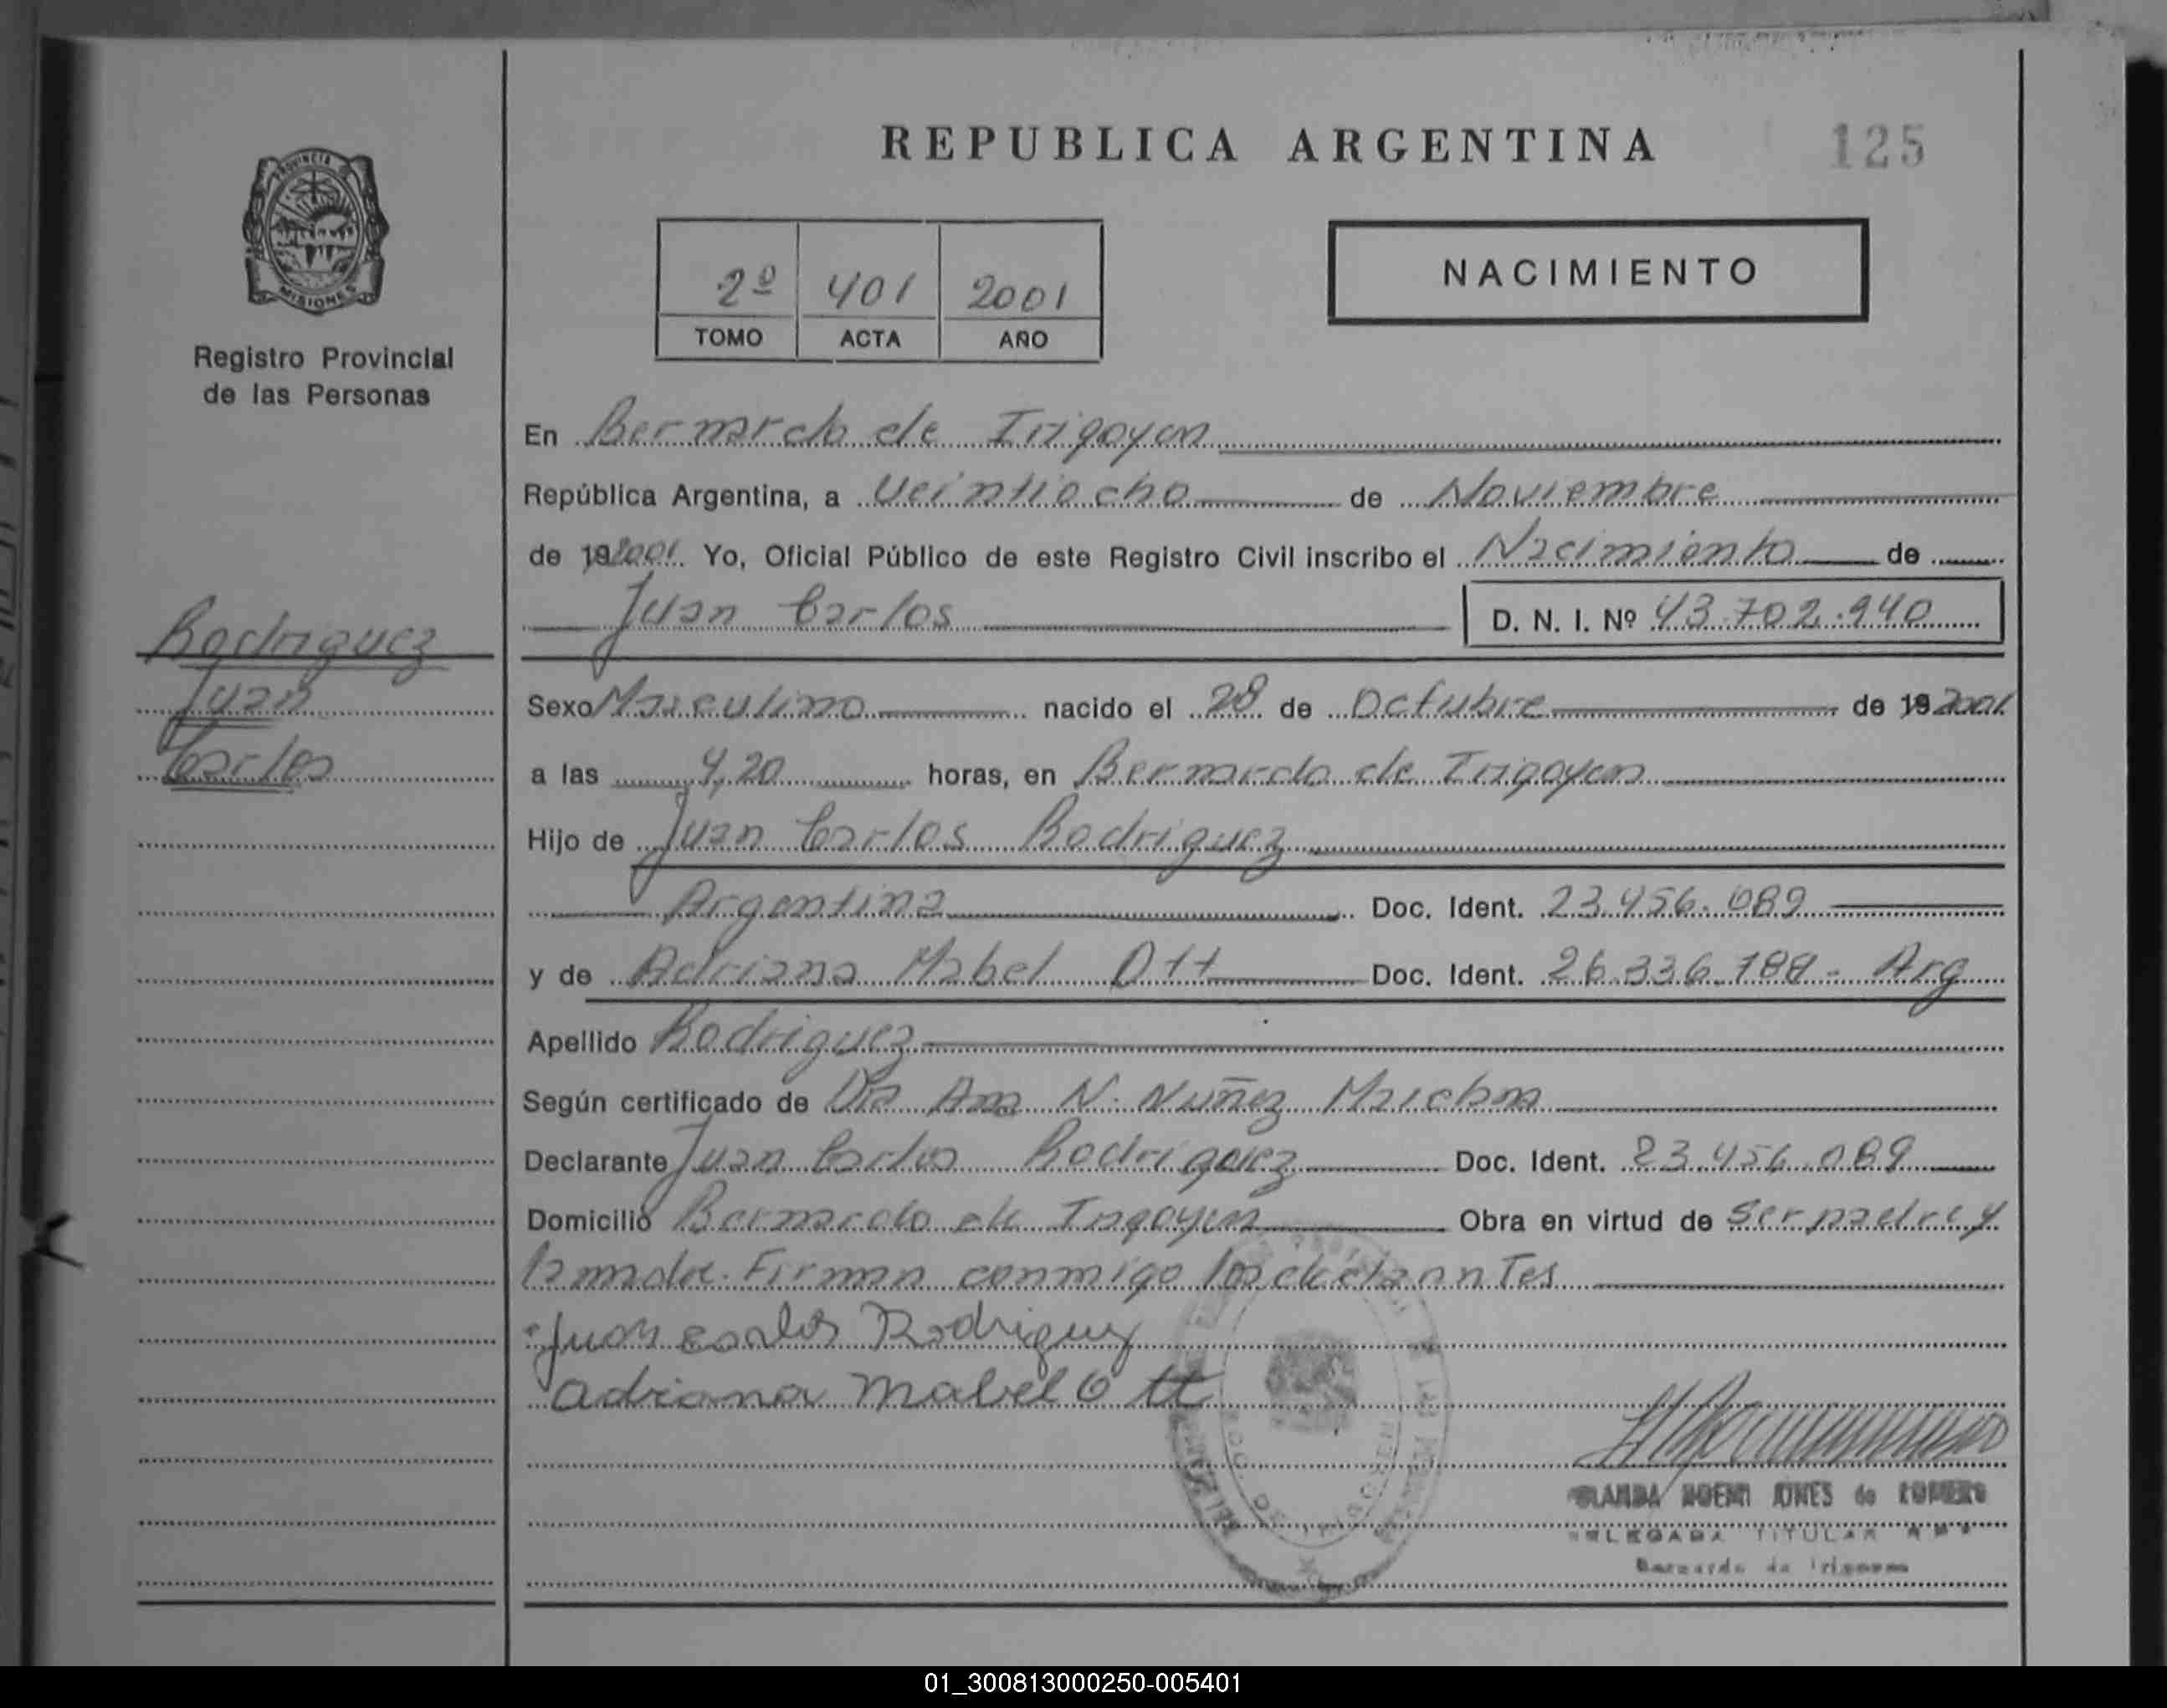 REPUBLICA ARGENTINA
125
PROVINCIA
MISIONES
Registro Provincial
de las Personas
2º 401 2001
TOMO ACTA AÑO
NACIMIENTO
En Bernardo de Irigoyen
República Argentina, a Veintiocho de Noviembre
de 192001. Yo, Oficial Público de este Registro Civil inscribo el Nacimiento de
Juan Carlos D. N. I. Nº 43.702.940
Rodriguez
Juan
Carlos
Sexo Masculino nacido el 28 de Octubre de 19 2001
a las 4,20 horas, en Bernardo de Irigoyen
Hijo de Juan Carlos Rodriguez
Argentina Doc. Ident. 23.456.089
y de Adriana Mabel Ott Doc. Ident. 26.336.788 - Arg
Apellido Rodriguez
Según certificado de Dra Ana N. Nuñez
Declarante Juan Carlos Rodriguez Doc. Ident. 23.456.089
Domicilio Bernardo de Irigoyen Obra en virtud de ser padre y
la madre. Firman conmigo los declarantes
Juan Carlos Rodriguez
Adriana Mabel Ott
NOEMI de ROMERO
DELEGADA TITULAR
Bernardo de Irigoyen
01_300813000250-005401